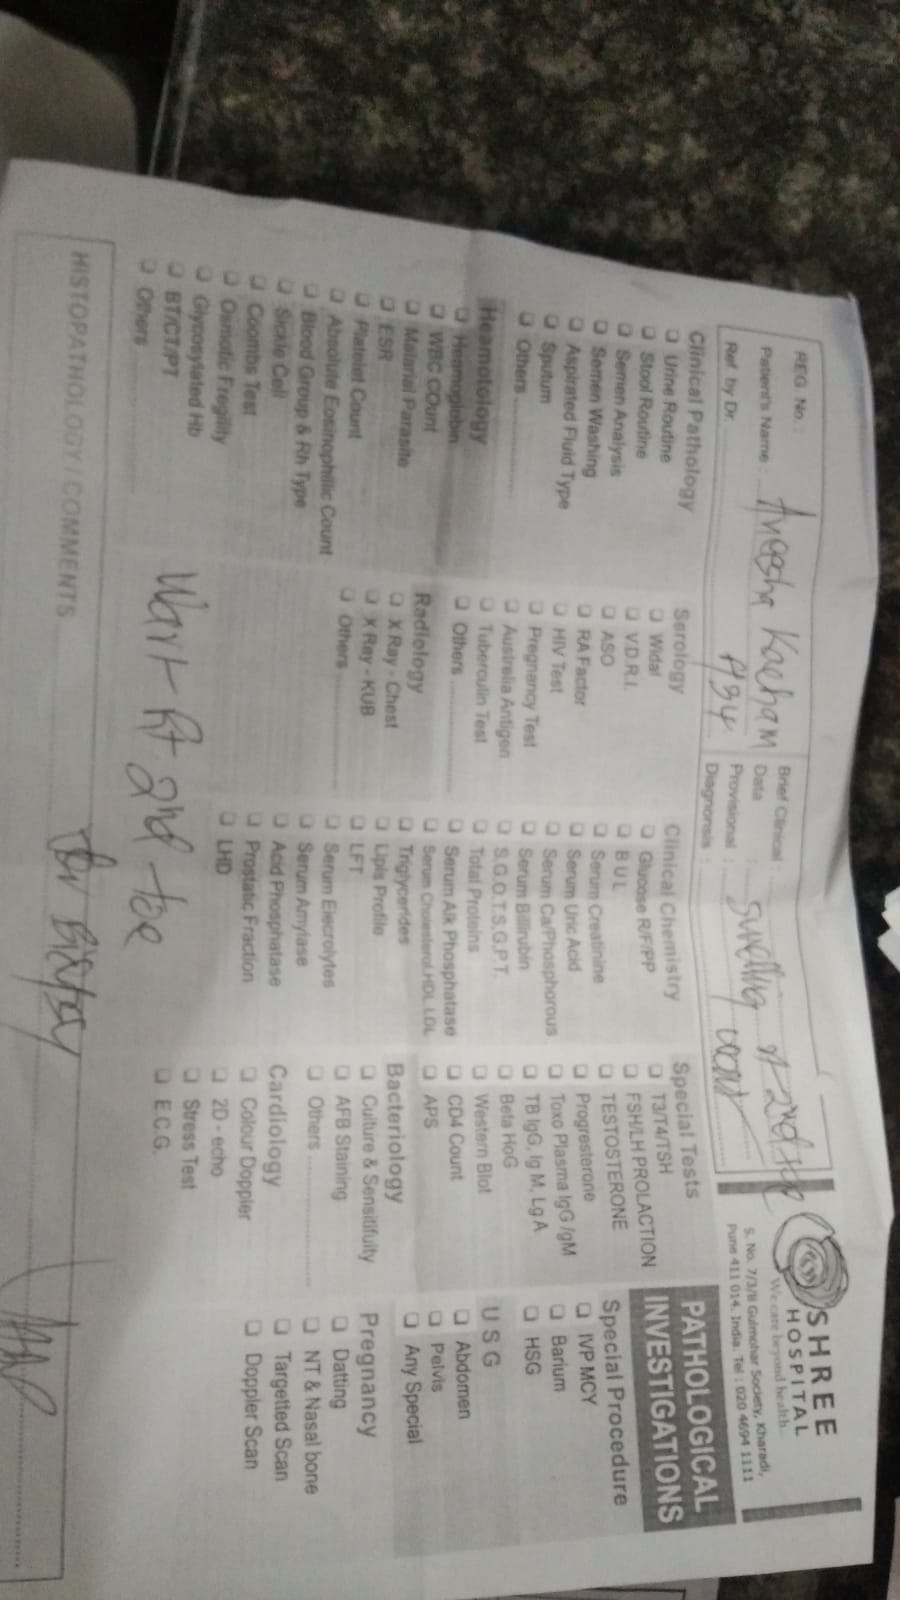 SHREE
HOSPITAL
We care beyond health...
S. No. 7/3/8 Gulmohar Society, Kharadi,
Pune 411 014. India. Tel : 020 4694 1111
PATHOLOGICAL
INVESTIGATIONS
REG No. :
Patient's Name :
Ref. by Dr.
Brief Clinical :
Data : Swelling 2nd toe
Provisional :
Diagnonsis :
Clinical Pathology
Urine Routine
Stool Routine
Semen Analysis
Semen Washing
Aspirated Fluid Type
Sputum
Others
Heamotology
Hemoglobin
WBC COunt
Malarial Parasite
ESR
Platelet Count
Absolute Eosinophillic Count
Blood Group & Rh Type
Sickle Cell
Coombs Test
Osmotic Fregility
Glyoosylated Hb
BT/CT/PT
Others
Serology
Widal
V.D.R.I.
ASO
RA Factor
HIV Test
Pregnancy Test
Australia Antigen
Tuberculin Test
Others
Radiology
X Ray - Chest
X Ray - KUB
Others
Clinical Chemistry
Glucose R/F/PP
B U L
Serum Creatinine
Serum Uric Acid
Serum Ca/Phosphorous
Serum Billirubin
S.G.O.T.S.G.P.T.
Total Proteins
Serum Alk Phosphatase
Serum Cholesterol.HDL.LDL
Triglycerides
Lipis Profile
LFT
Serum Elecrolytes
Serum Amylase
Acid Phosphatase
Prostatic Fraction
LHD
Special Tests
T3/T4/TSH
FSH/LH PROLACTION
TESTOSTERONE
Progresterone
Toxo Plasma IgG /gM
TB IgG, Ig M, Lg A
Beta HoG
Western Blot
CD4 Count
APS
Bacteriology
Culture & Sensitifuity
AFB Staining
Others
Cardiology
Colour Doppler
2D - echo
Stress Test
E.C.G.
Special Procedure
IVP MCY
Barium
HSG
U S G
Abdomen
Pelvis
Any Special
Pregnancy
Datting
NT & Nasal bone
Targetted Scan
Doppler Scan
Wart Rt. 2nd toe
HISTOPATHOLOGY / COMMENTS
for Biopsy